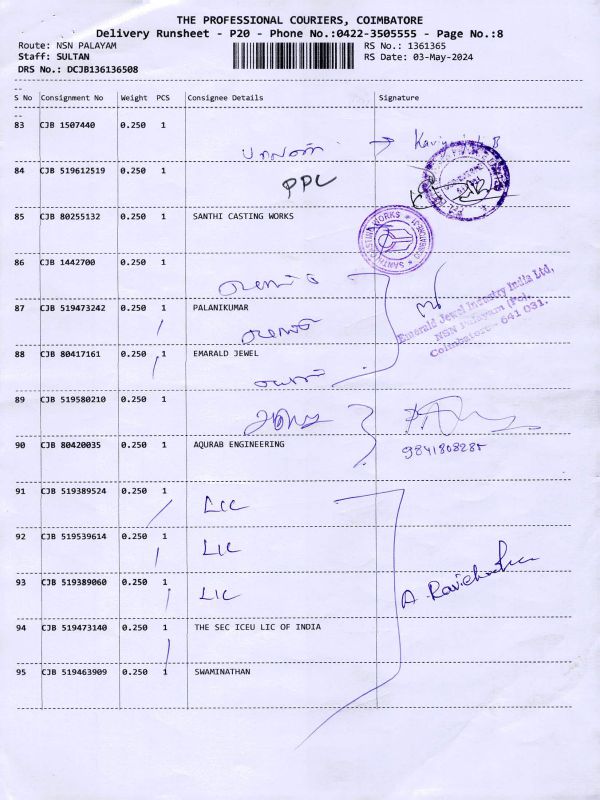 THE PROFESSIONAL COURIERS, COIMBATORE
Delivery Runsheet - P20 - Phone No.:0422-3505555 - Page No.:8
Route: NSN PALAYAM
RS No.: 1361365
Staff: SULTAN
RS Date: 03-May-2024
DRS No.: DCJB136136508
S No Consignment No Weight PCS Consignee Details Signature
83 CJB 1507440 0.250 1
84 CJB 519612519 0.250 1
PPL
85 CJB 80255132 0.250 1 SANTHI CASTING WORKS
86 CJB 1442700 0.250 1
87 CJB 519473242 0.250 1 PALANIKUMAR
Emerald Jewel Industry India Ltd,
NSN Palayam (Po),
Coimbatore - 641 031.
88 CJB 80417161 0.250 1 EMARALD JEWEL
89 CJB 519580210 0.250 1
90 CJB 80420035 0.250 1 AQURAB ENGINEERING
91 CJB 519389524 0.250 1 LIC
92 CJB 519539614 0.250 1 LIC
93 CJB 519389060 0.250 1 LIC
94 CJB 519473140 0.250 1 THE SEC ICEU LIC OF INDIA
95 CJB 519463909 0.250 1 SWAMINATHAN